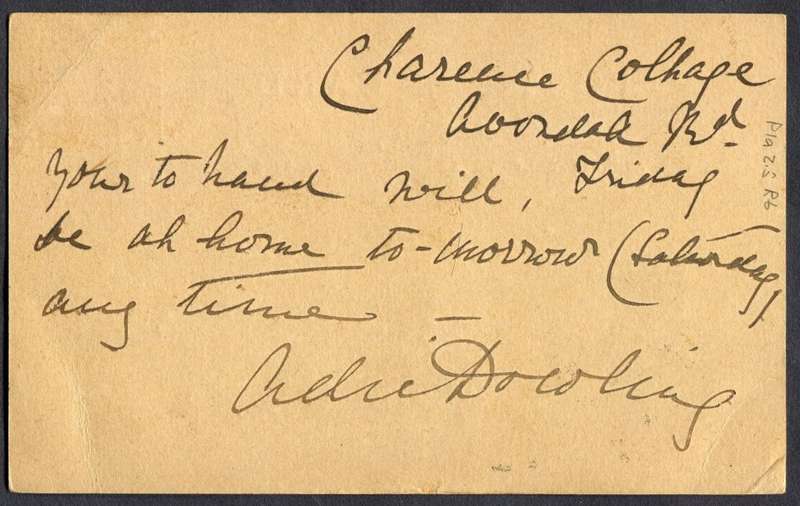 Clarence Cottage
Avondale Rd.
Friday
Yours to hand will,
be at home to-morrow (Saturday)
any time —
Adie Dowling
P19 2.5 R6